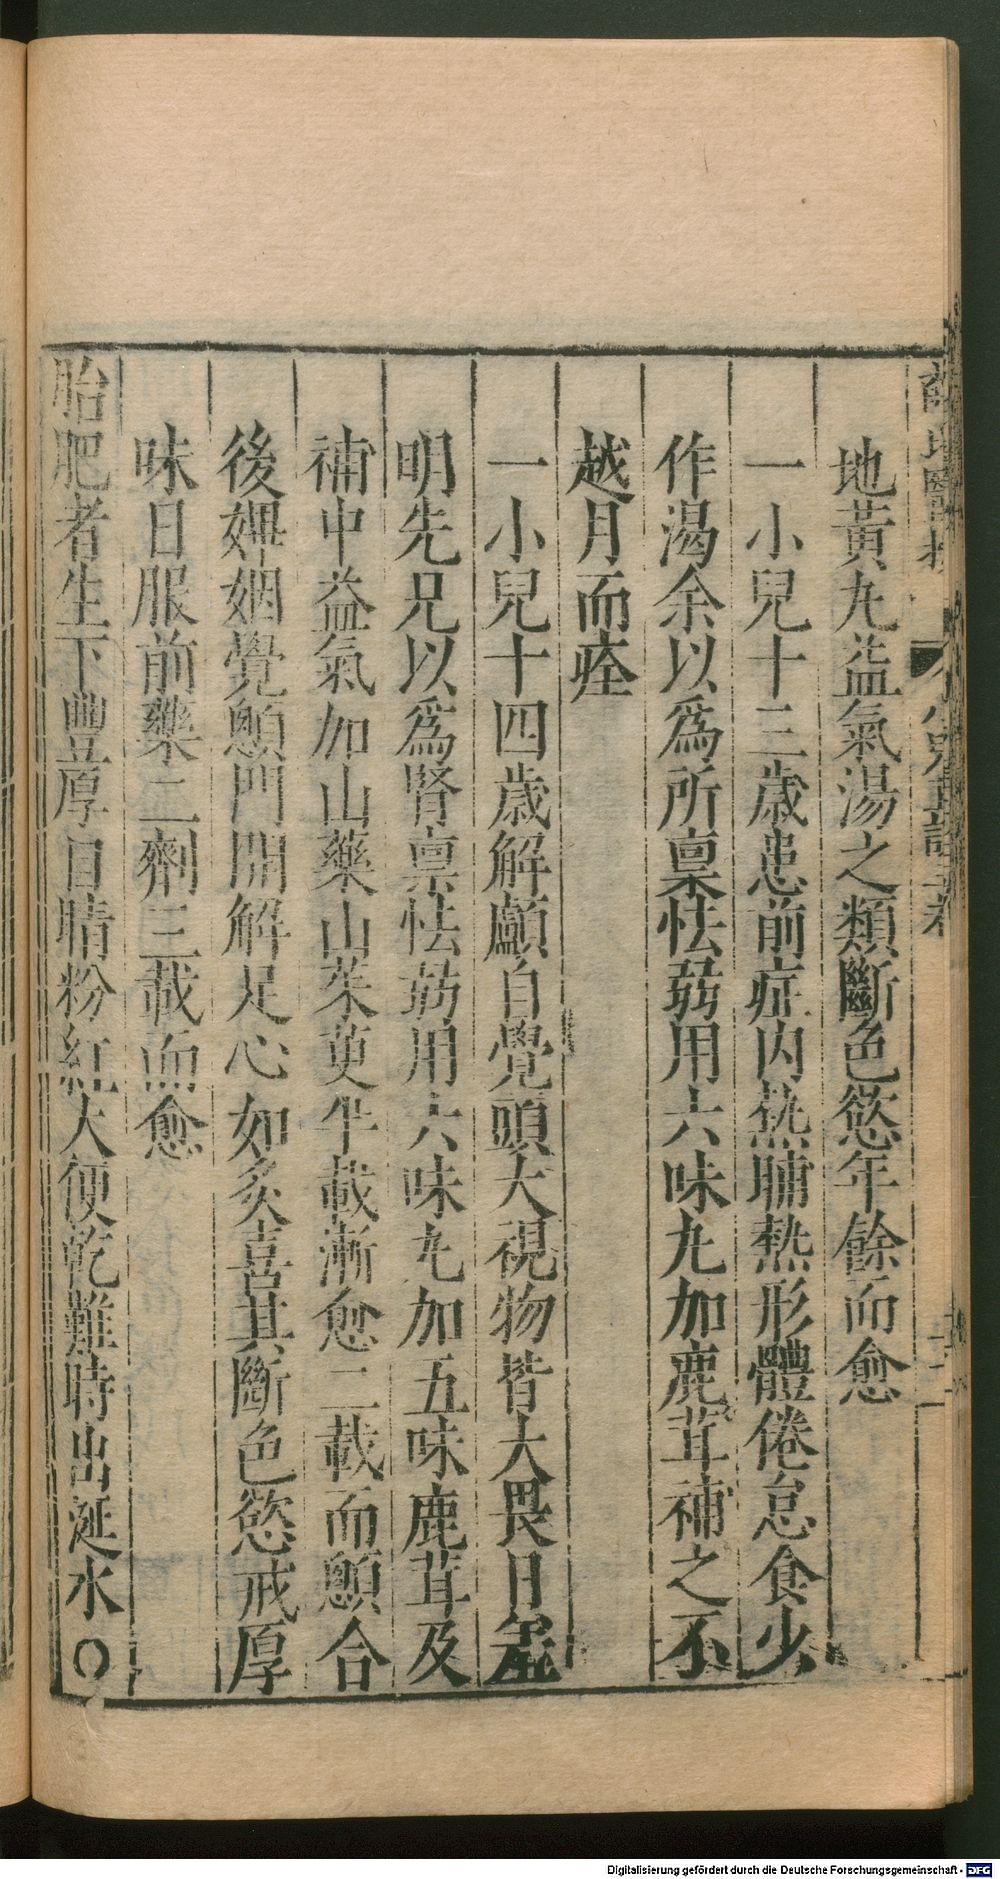 地黃丸益氣湯之類斷色慾年餘而愈
一小兒十三歲患前症内熱晡熱形體倦怠食少
作渴余以爲所稟怯弱用六味丸加鹿茸補之不
越月而痊
一小兒十四歲解顱自覺頭大視物皆大畏日羞
明先兄以爲腎稟怯弱用六味丸加五味鹿茸及
補中益氣加山藥山茱萸半載漸愈二載而顖合
後婚姻覺顖門開解足心如炙喜其斷色慾戒厚
味日服前藥二劑三載而愈
胎肥者生下豐厚目睛粉紅大便乾難時出涎水〇
Digitalisierung gefördert durch die Deutsche Forschungsgemeinschaft - DFG